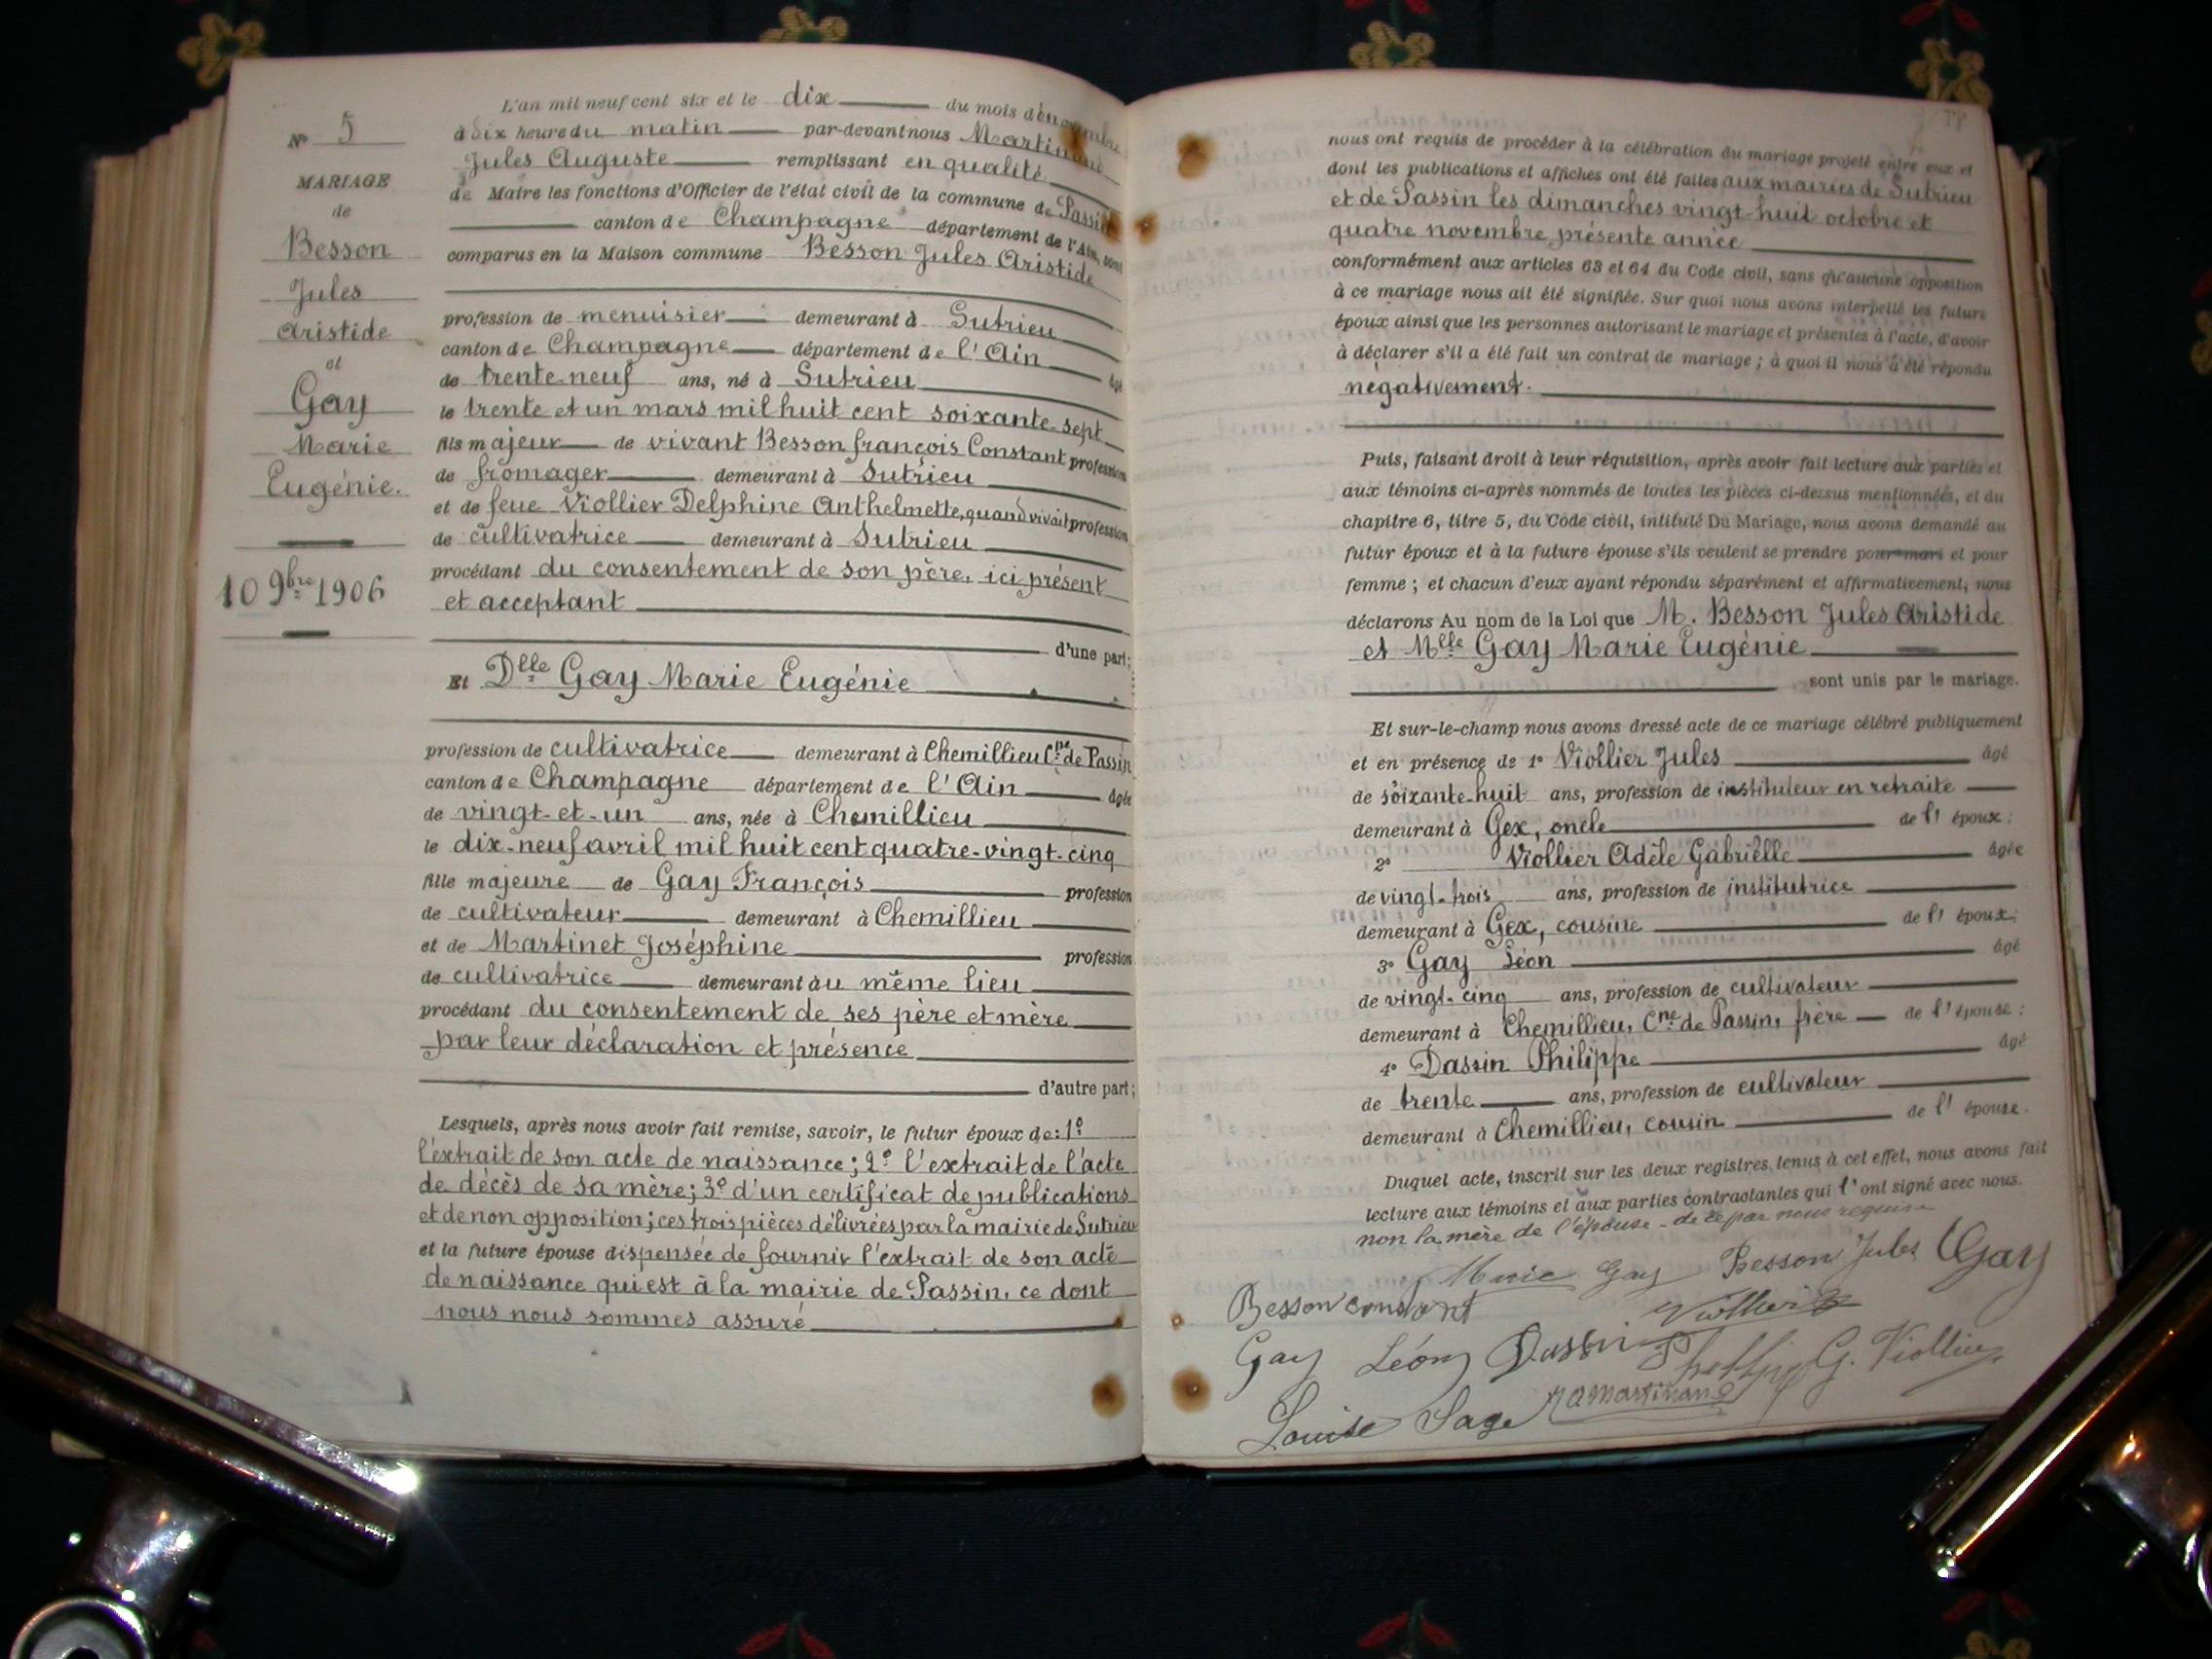 Nº 5
MARIAGE
de
Besson
Jules
Aristide
et
Gay
Marie
Eugénie.
10 9bre 1906
L'an mil neuf cent six et le dix du mois de novembre
à dix heure du matin par-devant nous Martinand
Jules Auguste remplissant en qualité
de Maire les fonctions d'Officier de l'état civil de la commune de Passin
canton de Champagne département de l'Ain, sont
comparus en la Maison commune Besson Jules Aristide
profession de menuisier demeurant à Sutrieu
canton de Champagne département de l'Ain âgé
de trente-neuf ans, né à Sutrieu
le trente et un mars mil huit cent soixante-sept
fils majeur de vivant Besson françois Constant profession
de fromager demeurant à Sutrieu
et de feue Viollier Delphine Anthelmette, quand vivait profession
de cultivatrice demeurant à Sutrieu
procédant du consentement de son père, ici présent
et acceptant
d'une part;
Et Dlle Gay Marie Eugénie
profession de cultivatrice demeurant à Chemillieu Cne de Passin
canton de Champagne département de l'Ain âgée
de vingt-et-un ans, née à Chemillieu
le dix-neuf avril mil huit cent quatre-vingt-cinq
fille majeure de Gay François profession
de cultivateur demeurant à Chemillieu
et de Martinet Joséphine profession
de cultivatrice demeurant au même lieu
procédant du consentement de ses père et mère
par leur déclaration et présence
d'autre part;
Lesquels, après nous avoir fait remise, savoir, le futur époux de: 1º
l'extrait de son acte de naissance; 2º l'extrait de l'acte
de décès de sa mère; 3º d'un certificat de publications
et de non opposition; ces trois pièces délivrées par la mairie de Sutrieu
et la future épouse dispensée de fournir l'extrait de son acte
de naissance qui est à la mairie de Passin, ce dont
nous nous sommes assuré
nous ont requis de procéder à la célébration du mariage projeté entre eux et
dont les publications et affiches ont été faites aux mairies de Sutrieu
et de Passin les dimanches vingt-huit octobre et
quatre novembre présente année
conformément aux articles 63 et 64 du Code civil, sans qu'aucune opposition
à ce mariage nous ait été signifiée. Sur quoi nous avons interpellé les futurs
époux ainsi que les personnes autorisant le mariage et présentes à l'acte, d'avoir
à déclarer s'il a été fait un contrat de mariage; à quoi il nous a été répondu
négativement.
Puis, faisant droit à leur réquisition, après avoir fait lecture aux parties et
aux témoins ci-après nommés de toutes les pièces ci-dessus mentionnées, et du
chapitre 6, titre 5, du Code civil, intitulé Du Mariage, nous avons demandé au
futur époux et à la future épouse s'ils veulent se prendre pour mari et pour
femme; et chacun d'eux ayant répondu séparément et affirmativement, nous
déclarons Au nom de la Loi que M. Besson Jules Aristide
et Mlle Gay Marie Eugénie
sont unis par le mariage.
Et sur-le-champ nous avons dressé acte de ce mariage célébré publiquement
et en présence de 1º Viollier Jules âgé
de soixante-huit ans, profession de instituteur en retraite
demeurant à Gex, oncle de l'époux;
2º Viollier Adèle Gabrielle âgée
de vingt-trois ans, profession de institutrice
demeurant à Gex, cousine de l'époux;
3º Gay Léon âgé
de vingt-cinq ans, profession de cultivateur
demeurant à Chemillieu, Cne de Passin, frère de l'épouse;
4º Dassin Philippe âgé
de trente ans, profession de cultivateur
demeurant à Chemillieu, cousin de l'épouse.
Duquel acte, inscrit sur les deux registres tenus à cet effet, nous avons fait
lecture aux témoins et aux parties contractantes qui l'ont signé avec nous.
non la mère de l'épouse de ce par nous requise
Marie Gay Besson Jules Gay
Besson constant Viollier
Gay Léon Dassin G. Viollier
Louise Sage Martinand